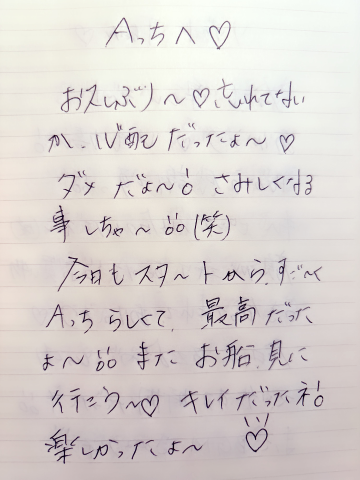 Aっちへ♡
お久しぶり〜♡忘れてない
か、心配だったよ〜♡
ダメだよ〜!!さみしくなる
事しちゃ〜!!(笑)
今日もスタートから、すご〜く
Aっちらしくて、最高だった
よ〜!!また お船、見に
行こう〜♡ キレイだったネ!!
楽しかったよ〜♡